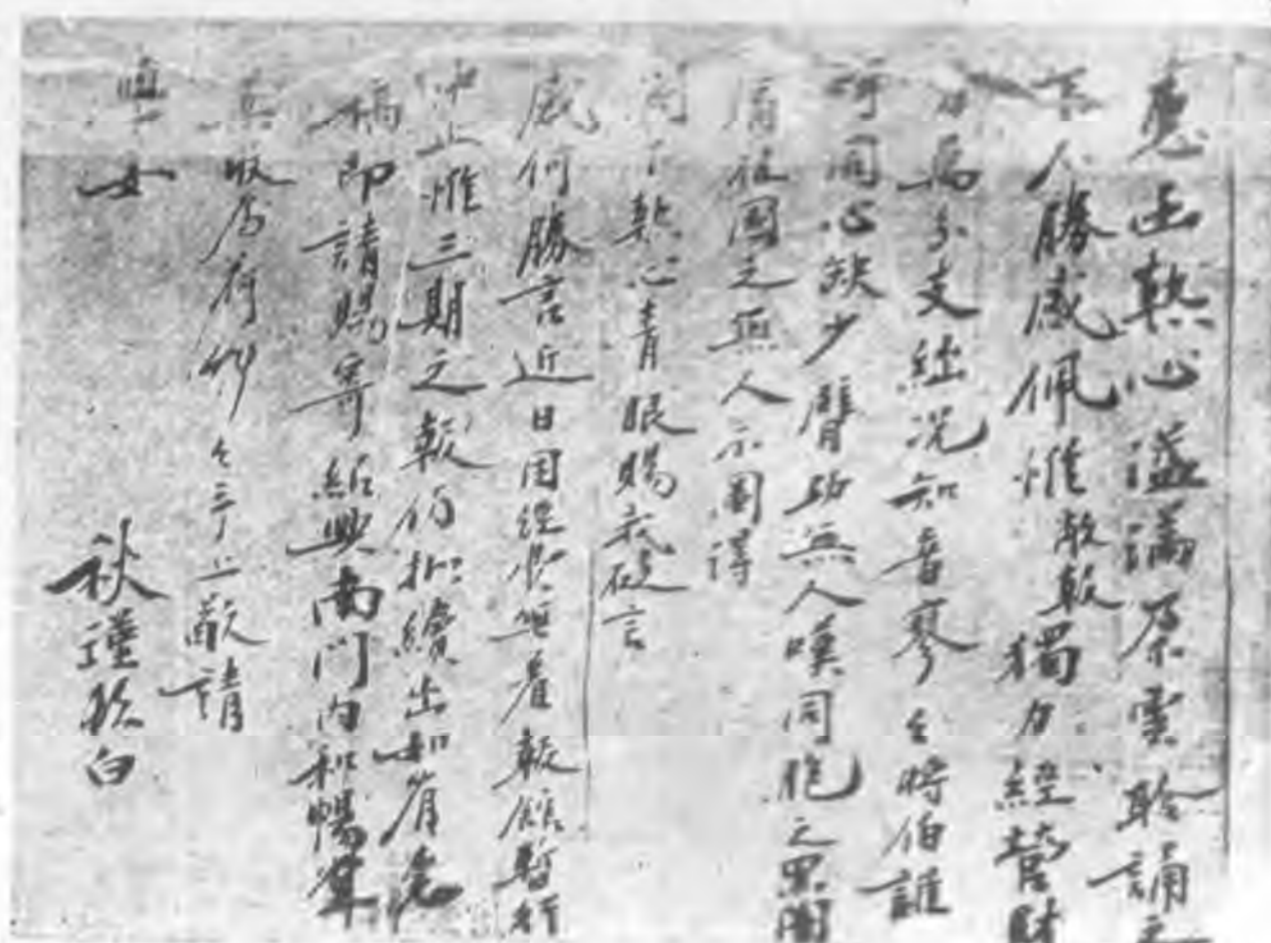 惠函熱心溢滿原雲聆誦之
下不勝感佩惟敝報獨力經營財
力萬分支絀況知音寥々時伯誰
訝同心缺少臂助無人嘆同胞之黑闇
痛祖國之無人不圖得
閣下熱心青眼賜我砭言
感何勝言近日因經費無着報館暫行
中止惟三期之報仍擬續出如有
稿即請賜寄紹興南門内和暢堂
查收為荷 々手上敬請
學安
秋瑾斂白